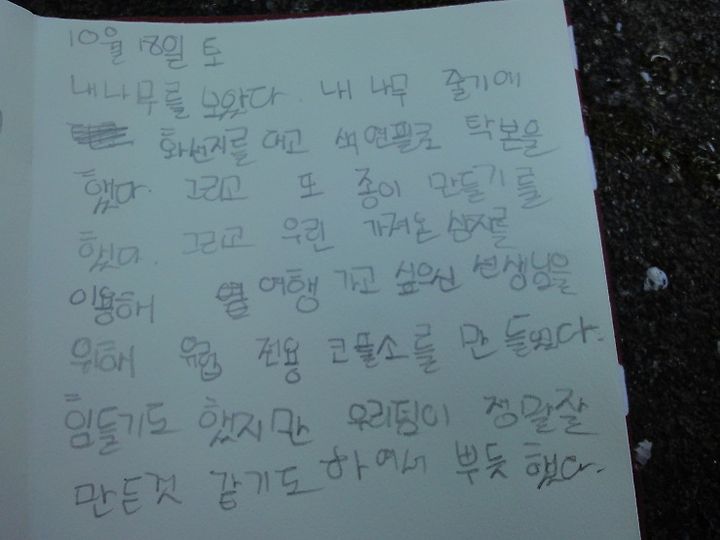 10월 18일 토
내나무를 보았다. 내 나무 줄기에
화선지를 대고 색연필로 탁본을
했다. 그리고 또 종이 만들기를
했다. 그리고 우린 가져온 상자를
이용해 여행 가고 싶으신 선생님을
위해 유럽 전용 코플소를 만들었다.
힘들기도 했지만 우리팀이 정말잘
만든것 같기도 하여서 뿌듯했다.